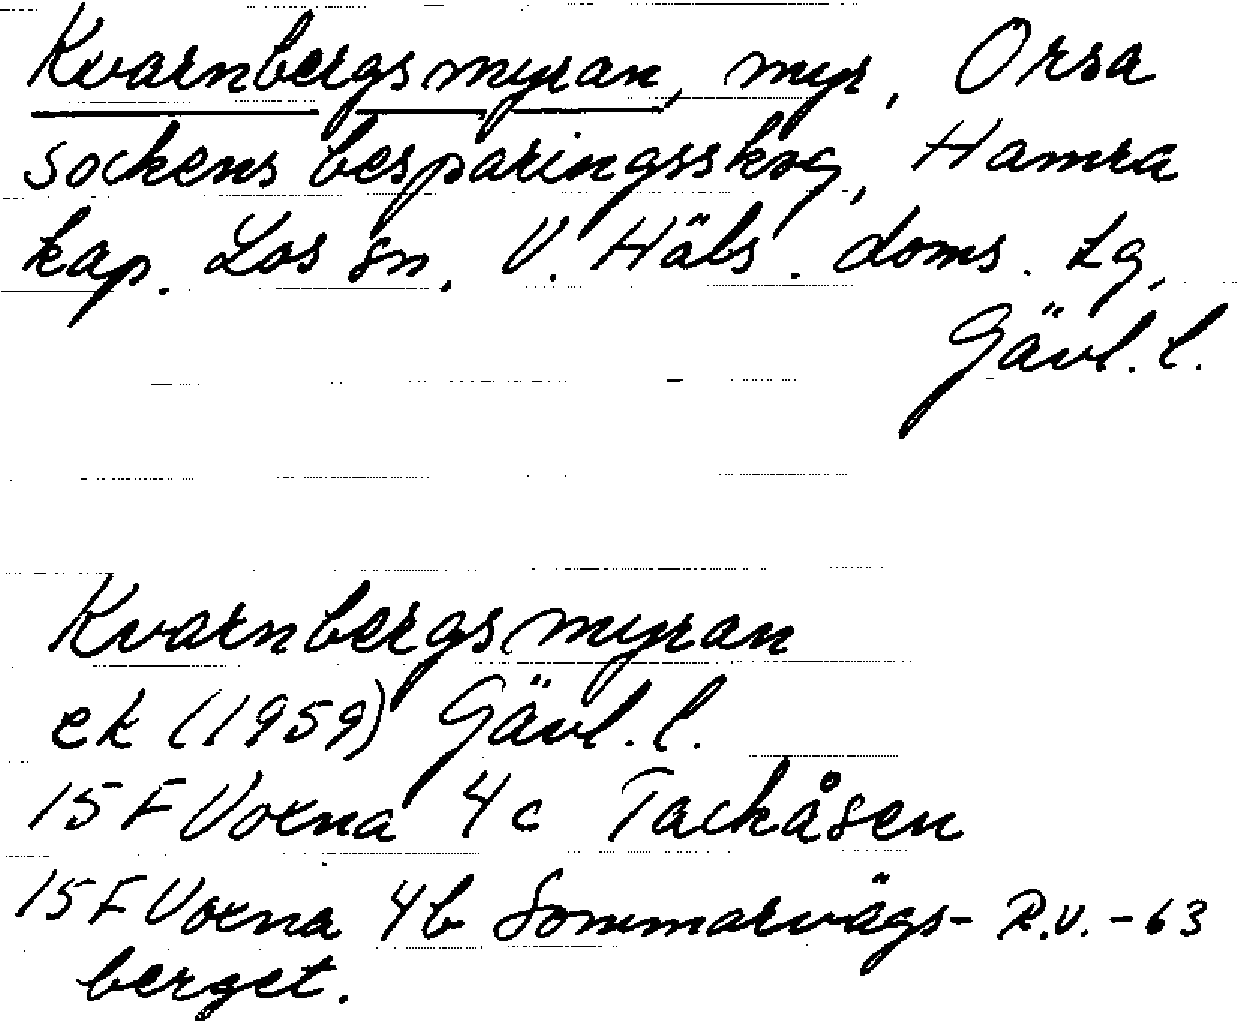 Kvarnbergsmyran, myr, Orsa
sockens besparingsskog, Hamra
kap. Los sn. V. Häls. doms. tg,
Gävl. l.
Kvarnbergsmyran
ek (1959) Gävl. l.
15 F Voxna 4c Tackåsen
15 F Voxna 4b Sommarvägs- R.V. -63
berget.